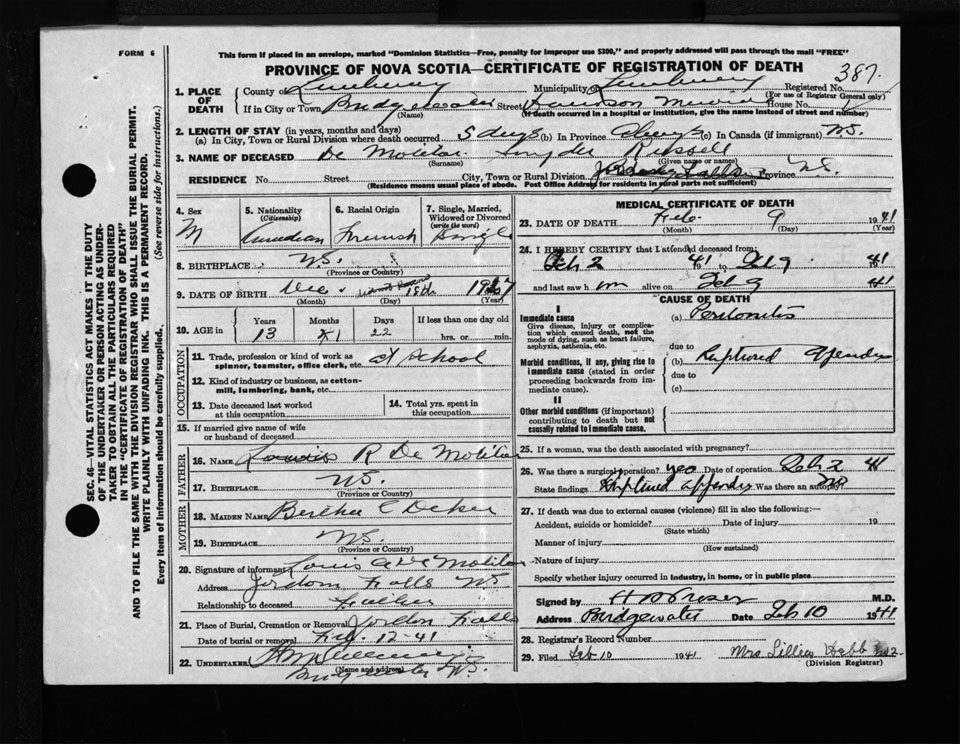 FORM 6
This form if placed in an envelope, marked "Dominion Statistics—Free, penalty for improper use $300," and properly addressed will pass through the mail "FREE"
PROVINCE OF NOVA SCOTIA—CERTIFICATE OF REGISTRATION OF DEATH
387.
1. PLACE OF DEATH
County of Lunenburg Municipality Lunenburg Registered No.
(For use of Registrar General only)
If in City or Town Bridgewater Street House No.
(Name) (If death occurred in a hospital or institution, give the name instead of street and number)
2. LENGTH OF STAY (in years, months and days)
(a) In City, Town or Rural Division where death occurred 5 days (b) In Province Always (c) In Canada (if immigrant) N.S.
3. NAME OF DECEASED De Molitor Snyder Russell
(Surname) (Given name or names)
RESIDENCE No. Street City, Town or Rural Division Jordan Falls Province N.S.
(Residence means usual place of abode. Post Office Address for residents in rural parts not sufficient)
4. Sex M
5. Nationality (Citizenship) Canadian
6. Racial Origin French
7. Single, Married, Widowed or Divorced (write the word) Single
8. BIRTHPLACE N.S.
(Province or Country)
9. DATE OF BIRTH Dec. 18th 1927
(Month) (Day) (Year)
10. AGE in Years Months Days If less than one day old
13 1 22 hrs. or min.
OCCUPATION
11. Trade, profession or kind of work as spinner, teamster, office clerk, etc. at School
12. Kind of industry or business, as cotton-mill, lumbering, bank, etc.
13. Date deceased last worked at this occupation
14. Total yrs. spent in this occupation
15. If married give name of wife or husband of deceased
FATHER
16. Name Louis R De Molitor
17. Birthplace N.S.
(Province or Country)
MOTHER
18. Maiden Name Bertha C Decker
19. Birthplace N.S.
(Province or Country)
20. Signature of informant Louis De Molitor
Address Jordan Falls NS
Relationship to deceased Father
21. Place of Burial, Cremation or Removal Jordon Falls
Date of burial or removal Feb. 12-41
22. UNDERTAKER
(Name and address)
Bridgewater N.S.
MEDICAL CERTIFICATE OF DEATH
23. DATE OF DEATH Feb. 9 1941
(Month) (Day) (Year)
24. I HEREBY CERTIFY that I attended deceased from:
Feb 2 1941 to Feb 9 1941
and last saw him alive on Feb 9 41
CAUSE OF DEATH
I
Immediate cause
Give disease, injury or complication which caused death, not the mode of dying, such as heart failure, asphyxia, asthenia, etc.
(a) Peritonitis
due to
Morbid conditions, if any, giving rise to immediate cause (stated in order proceeding backwards from immediate cause).
(b) Ruptured Appendix
due to
(c)
II
Other morbid conditions (if important) contributing to death but not causally related to immediate cause.
25. If a woman, was the death associated with pregnancy?
26. Was there a surgical operation? yes Date of operation Feb 2 41
State findings Ruptured appendix Was there an autopsy? No
27. If death was due to external causes (violence) fill in also the following:—
Accident, suicide or homicide? Date of injury 19
(State which)
Manner of injury
(How sustained)
Nature of injury
Specify whether injury occurred in industry, in home, or in public place
Signed by M.D.
Address Bridgewater Date Feb 10 1941
28. Registrar's Record Number
29. Filed Feb 10 1941 Mrs Lillian Hebb
(Division Registrar)
SEC. 46—VITAL STATISTICS ACT MAKES IT THE DUTY
OF THE UNDERTAKER OR PERSON ACTING AS UNDER-
TAKER TO OBTAIN ALL THE PARTICULARS REQUIRED
IN THE "CERTIFICATE OF REGISTRATION OF DEATH"
AND TO FILE THE SAME WITH THE DIVISION REGISTRAR WHO SHALL ISSUE THE BURIAL PERMIT.
WRITE PLAINLY WITH UNFADING INK. THIS IS A PERMANENT RECORD.
Every item of information should be carefully supplied. (See reverse side for instructions.)